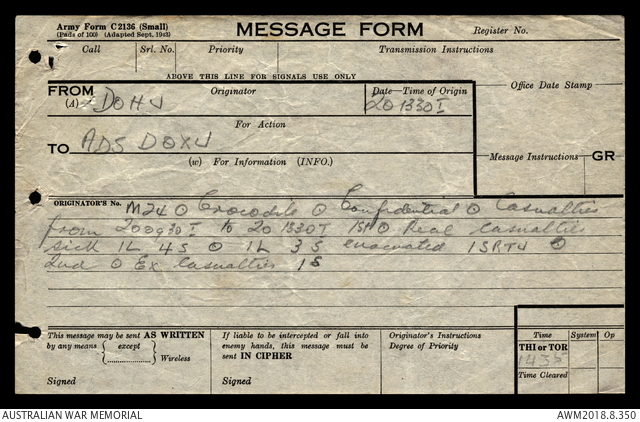 Army Form C2136 (Small)
(Pads of 100) (Adapted Sept. 1943)
MESSAGE FORM
Register No.
Call Srl. No. Priority Transmission Instructions
ABOVE THIS LINE FOR SIGNALS USE ONLY
FROM (A) DOHU Originator
Date—Time of Origin
20 1330 I
Office Date Stamp
For Action
TO ADS DOXU
(w) For Information (INFO.)
Message Instructions GR
ORIGINATOR'S No. M24 ⊙ Crocodile ⊙ Confidential ⊙ Casualties
from 200930 I to 20 1330 I 1st ⊙ Real Casualties
sick 1L 4S ⊙ 1L 3S evacuated 1S RTU ⊙
2nd ⊙ Ex Casualties 1S
This message may be sent AS WRITTEN
by any means { except } Wireless
Signed
If liable to be intercepted or fall into
enemy hands, this message must be
sent IN CIPHER
Signed
Originator's Instructions
Degree of Priority
Time System Op
THI or TOR
Time Cleared
AUSTRALIAN WAR MEMORIAL
AWM2018.8.350